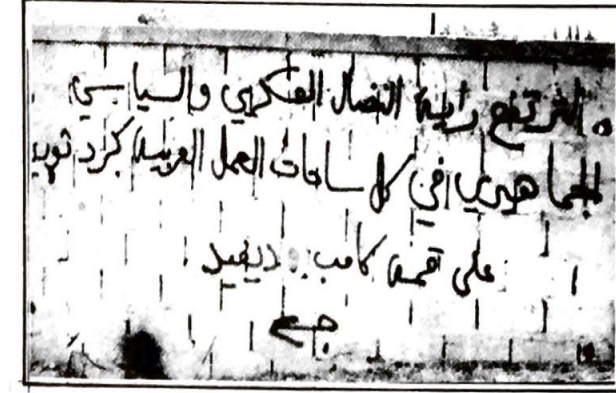 لترتفع راية النضال العسكري والسياسي
الجماهيري في كل ساحات العمل العربية كرد ثوري
على قمة كامب ديفيد
ج ع